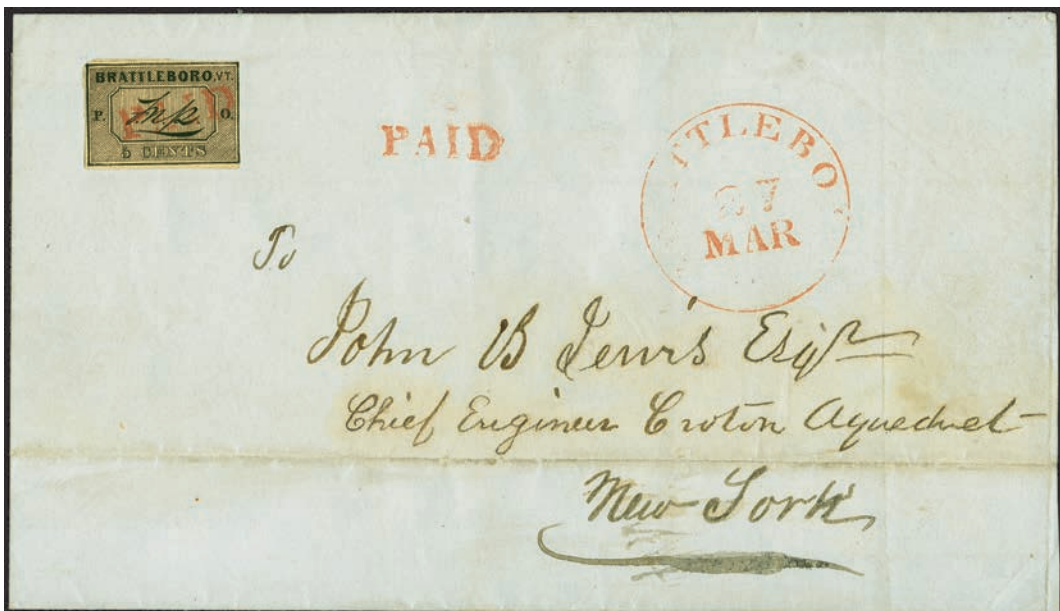 BRATTLEBORO, VT.
P. F.N.P. O.
PAID
5 CENTS
PAID
TTLEBO
27
MAR
To
John B Jervis Esqr
Chief Engineer Croton Aqueduct
New York